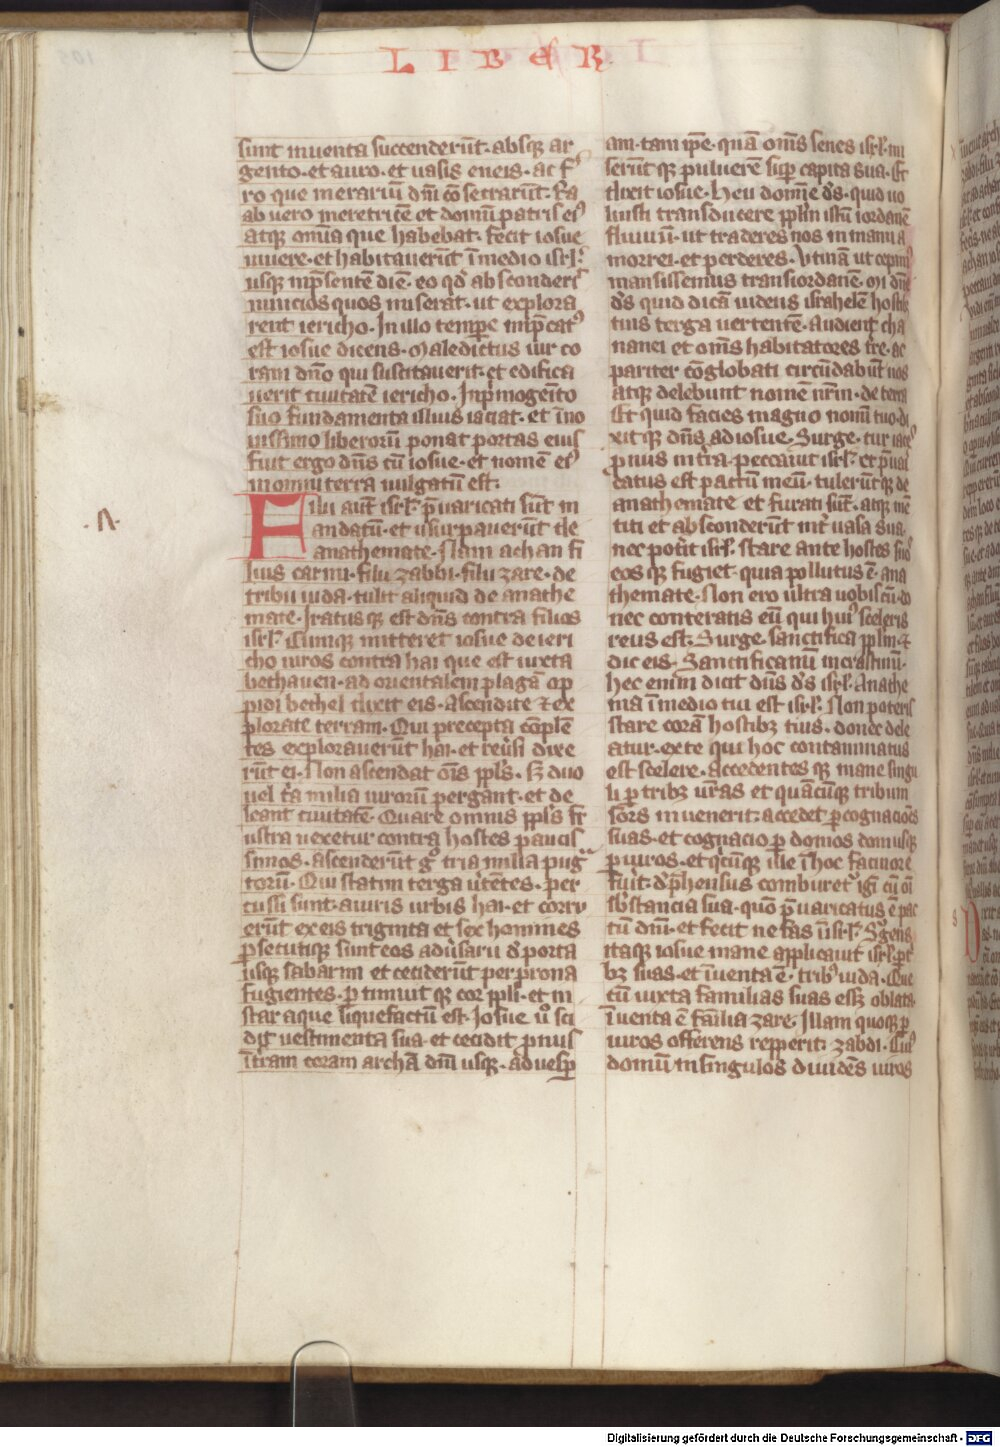 LIBER
sunt inuenta succenderūt· absqꝫ ar
gento· et auro· et uasis eneis· ac f̄
ro que in erariū dn̄i cōsecrarūt· Ra
ab uero meretricē et domū patris eiꝰ
atqꝫ om̄ia que habebat· fecit iosue
uiuere· et habitauerūt ī medio isrl̄·
usqꝫ in p̄sentē diē· eo qd̓ absconderit
nuncios quos miserat· ut explora
rent iericho· In illo tempe inp̄catꝰ
est iosue dicens· Maledictus uir co
ram dn̄o qui suscitauerit· et edifica
uerit ciuitatē iericho· In pͥmogeīto
suo fundamenta illius iaciat· et īno
uissimo liberorū ponat portas eius
fuit ergo dn̄s cū iosue· et nomē eiꝰ
in omni terra uulgatū est·
Filii aut̄ isrl̄· p̄uaricati sūt m
andatū· et usurpauerūt de
anathemate· Nam achan fi
lius carmi· filii zabbi· filii zare· de
tribu iuda· tulit aliquid de anathe
mate· Iratus qꝫ est dn̄s contra filios
isrl̄· Cumqꝫ mitteret iosue de ieri
cho uiros contra hai que est iuxta
bethauen· ad orientalem plagā op
pidi bethel dixit eis· Ascendite ⁊ ex
plorate terram· Qui precepta cōplē
tes explorauerūt hai· et reūsi dixe
rūt ei· Non ascendat oīs ppl̄s· sꝫ duo
uel tͥa milia uirorū pergant· et de
leant ciuitatē· Quare omnis ppl̄s fr
ustra uexetur contra hostes paucis
simos· ascenderūt gͦ tria milia pug
torū· Qui statim terga ūtentes· per
cussi sunt· auiris urbis hai· et corru
erūt ex eis triginta et sex homines
ꝑsecutiqꝫ sunt eos adūsarii d̓ porta
usqꝫ sabarim et ceciderūt per prona
fugientes· ꝑtimuit qꝫ cor ppl̄i· et in
star aque liquefactū est· Iosue uͦ sci
dit uestimenta sua· et cecidit pͦnus
ī tͥram coram archā dn̄i usqꝫ· ad uesꝑ
am· tam ip̄e· quā om̄s senes isrl̄· mi
serūt qꝫ puluerē suꝑ capita sua· Et
dixit iosue· Heu domine d̄s· quid uo
luisti transducere ppl̄m istū iordanē
fluuiū· ut traderes nos in manu a
morrei· et perderes· Vtinā ut cepimꝰ
mansissemus trans iordanē· Mi dn̄e
d̄s quid dicā uidens israhelē hostibꝫ
suis terga uertentē· Audient cha
nanei et om̄s habitatores tr̄e· ac
pariter cōglobati circūdabūt nos
atqꝫ delebunt nomē nr̄m· de terra
Et quid facies magno nomī tuo· di
xit qꝫ dn̄s ad iosue· Surge· cur iaces
pͦnus in tͥra· peccauit isrl̄· et p̄uari
catus est pactū meū· tulerūt qꝫ de
anathemate et furati sūt· atqꝫ mē
titi et absconderūt int̓ uasa sua·
nec potīt isrl̄· stare ante hostes suos
eos qꝫ fugiet· quia pollutus ē· ana
themate· Non ero ultra uobis cū· do
nec conteratis eū qui huiꝰ sceleris
reus est· Surge· sanctifica ppl̄m· ⁊
dic eis· Sanctificamī in crastinū·
hec enim dicit dn̄s d̄s isrl̄· Anathe
ma ī medio tui est isrl̄· Non poteris
stare corā hostibꝫ tuis· donec dele
atur· ex te qui hoc contaminatus
est scelere· accedentes qꝫ mane singu
li ꝑ tribꝫ ur̄as et quācūqꝫ tribum
sors inuenerit· accedet ꝑ cognacioēs
suas· et cognacio ꝑ domos domusqꝫ
ꝑ uiros· et qͥcūqꝫ ille ī hoc facinore
fuīt· dep̄hensus comburetꝰ igī cū oī
sb̄stancia sua· quō p̄uaricatus ē pac
tū dn̄i· et fecit nefas ī isrl̄· Sͥgens
itaqꝫ iosue mane applicauit isrl̄ ꝑ tͥ
bꝫ suas· et īuenta ē· tribꝰ iuda· Que
cū iuxta familias suas essꝫ oblata
īuenta ē famīlia zare· Illam quoqꝫ ꝑ
uiros offerens repperit· zabdi· Cuiꝰ
domū in singulos diuidēs uiros
Digitalisierung gefördert durch die Deutsche Forschungsgemeinschaft - DFG